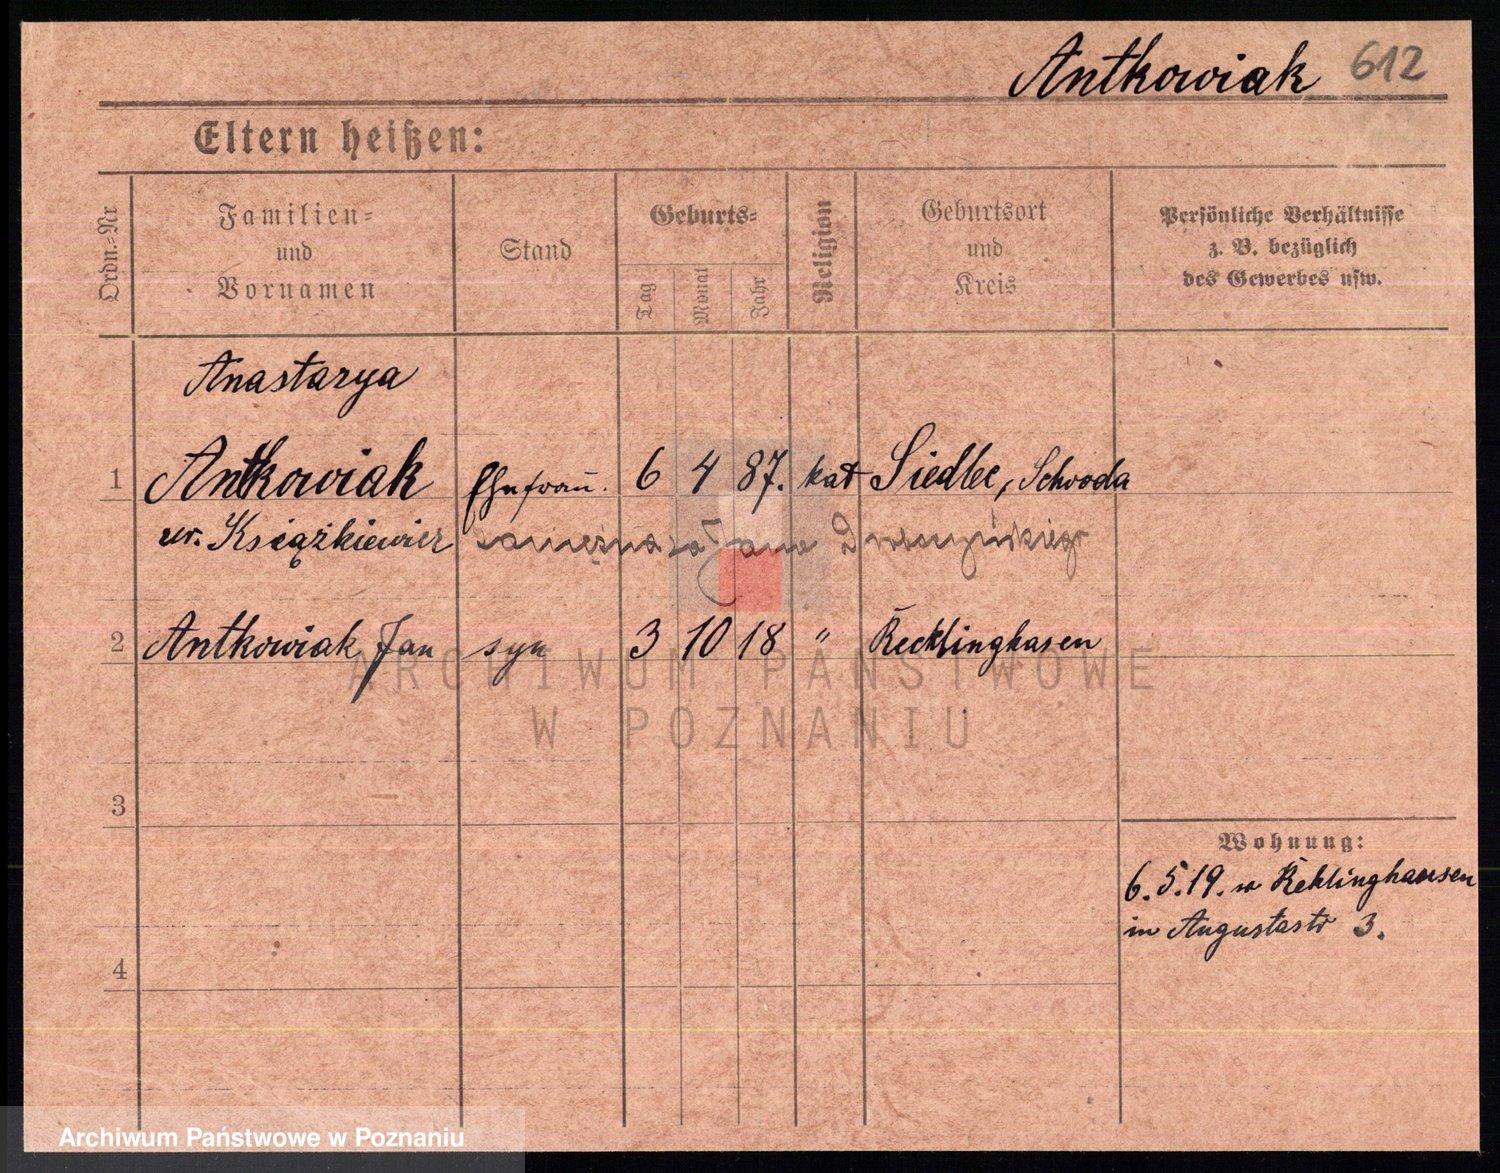 Antkowiak 612
Eltern heißen:
Ordn.-Nr
Familien-
und
Vornamen
Stand
Geburts-
Tag
Monat
Jahr
Religion
Geburtsort
und
Kreis
Persönliche Verhältnisse
z. B. bezüglich
des Gewerbes usw.
Anastazya
1 Antkowiak Ehefrau. 6 4 87. kat Siedlec, Schroda
ur. Książkiewicz zamężna za
2 Antkowiak Jan syn 3 10 18 " Recklinghasen
ARCHIWUM PAŃSTWOWE
W POZNANIU
3
Wohnung:
6.5.19. w Reklinghausen
in Augustastr 3.
4
Archiwum Państwowe w Poznaniu